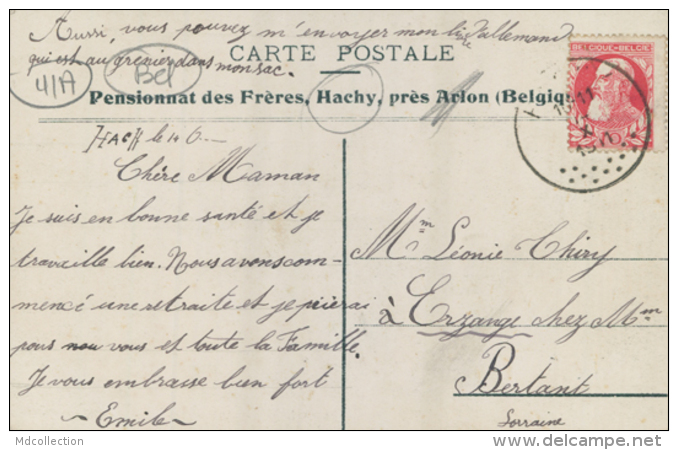 Aussi, vous pouvez m'envoyer mon livre d'allemand
qui est au grenier dans mon sac.
CARTE POSTALE
41A
Bel
Pensionnat des Frères, Hachy, près Arlon (Belgiq
BELGIQUE-BELGIË
Hach le 10 6
Chère Maman
Je suis en bonne santé et je
travaille bien. Nous avons com-
mencé une retraite et je prierai
pour nou vous et toute la Famille.
Je vous embrasse bien fort
~ Emile ~
Mme Léonie Thiry
à Erzange chez Mme
Bertant
Lorraine
Mdcollection
www.delcampe.net